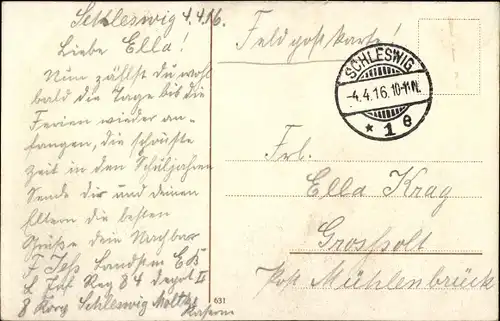 Schleswig 4.4.16.
Liebe Ella!
Nun zählst du wohl
bald die Tage bis die
Ferien wieder an-
fangen, die schönste
Zeit in den Schuljahren
Sende dir und deinen
Eltern die besten
Grüße dein Nachbar
F. Jess Landstm E B
Inf Reg 84 II
8 Korp Schleswig Moltke
Kaserne
Feldpostkarte!
SCHLESWIG
-4.4.16.10-11N.
* 1 e
Frl.
Ella Krag
Grossolt
Post Mühlenbrück
631